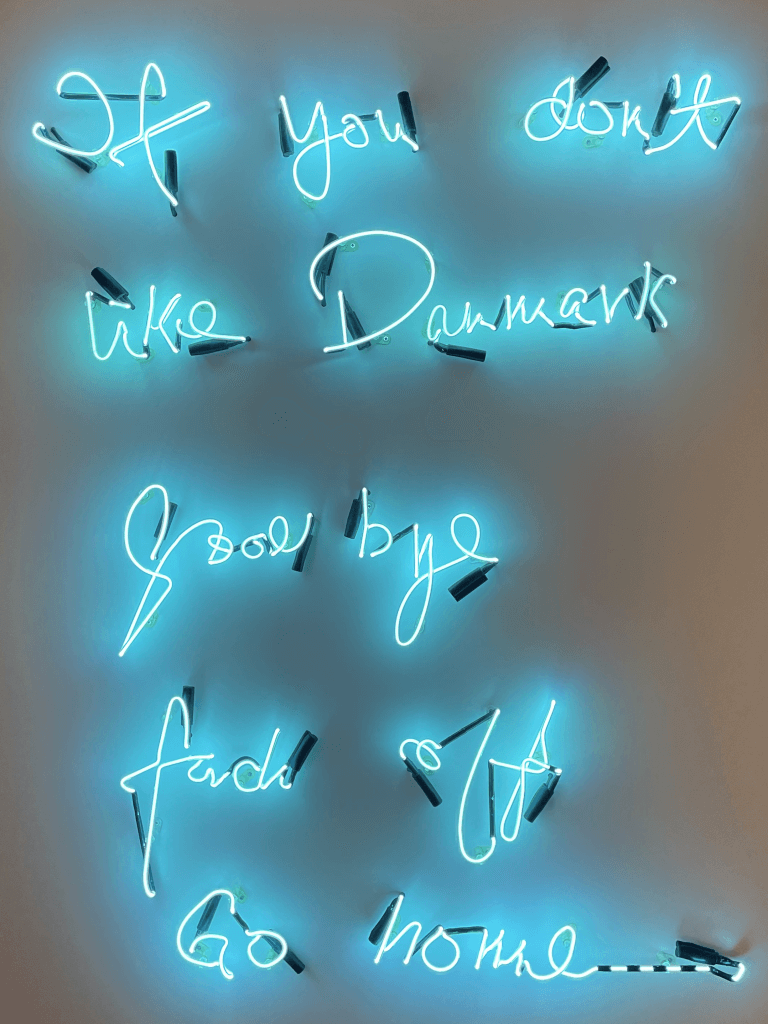 If you don't
like Danmark
good bye
fuck off
Go home